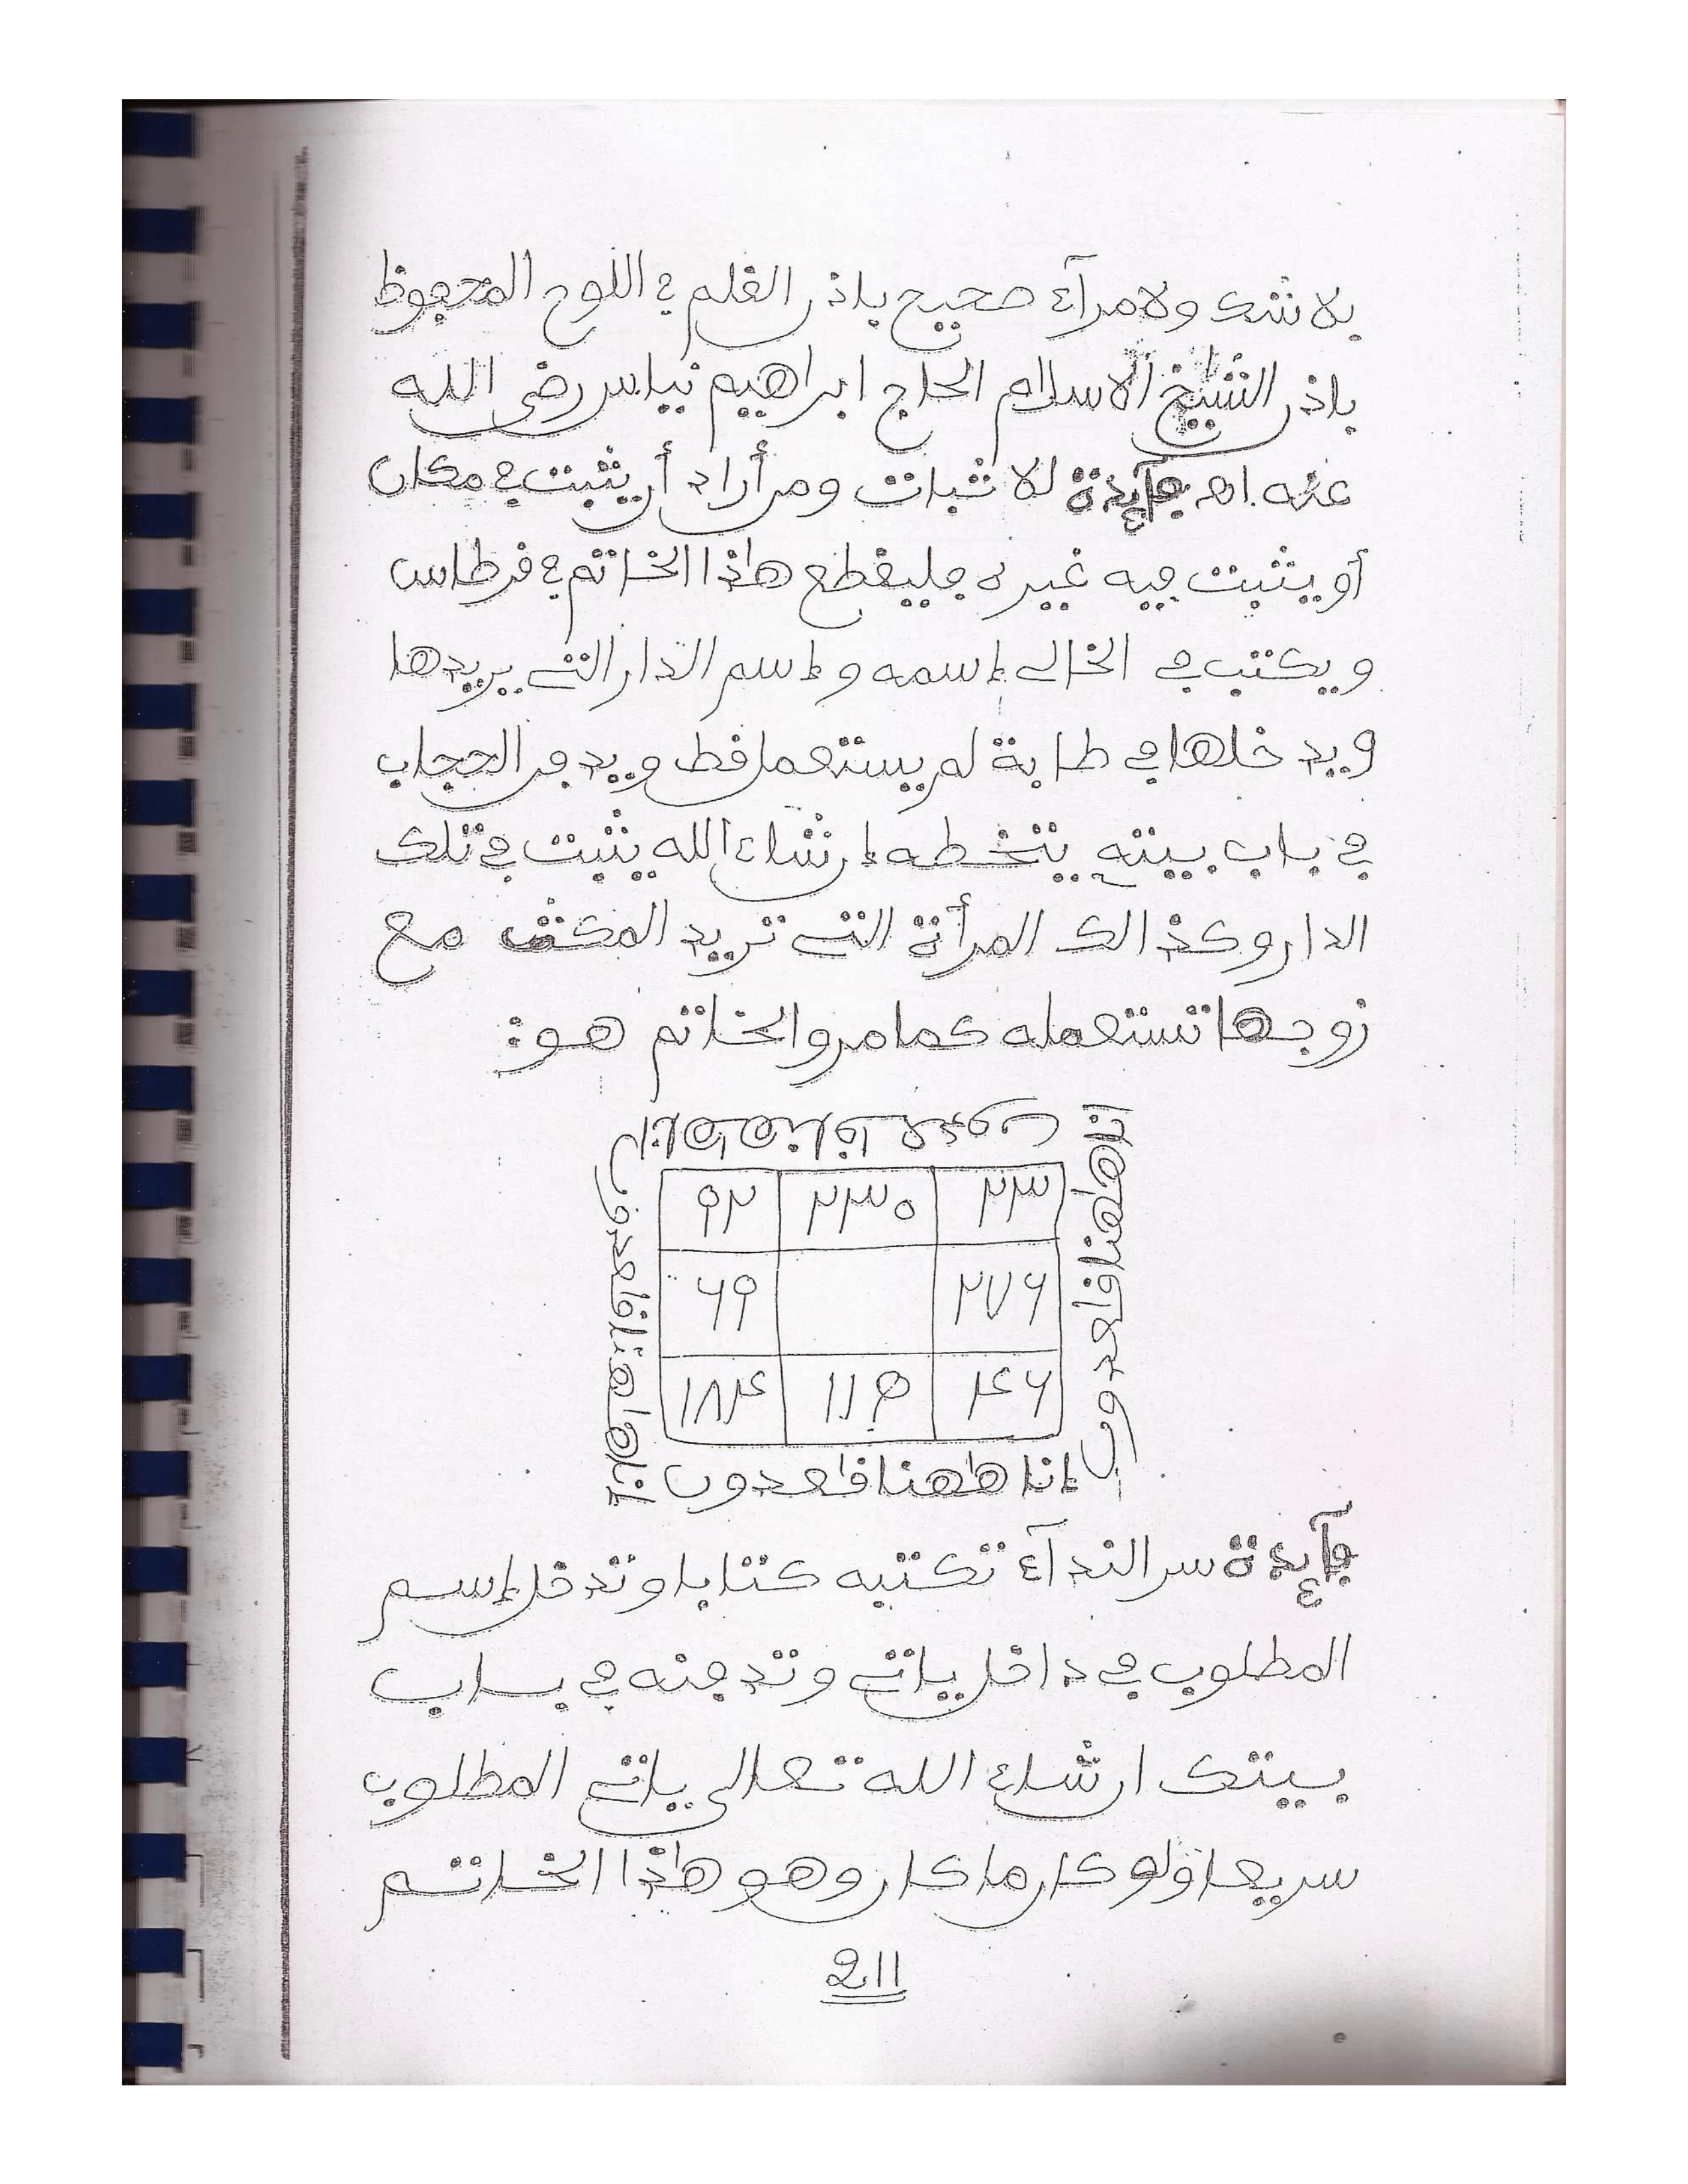 بلا شك ولا مرآء صحيح باذن القلم في اللوح المحفوظ
باذن الشيخ الاسلام الحاج ابراهيم نياس رضى الله
عنه.اه فآئدة لاثبات ومن أراد أن يثبت في مكان
أو يثبت فيه غيره فليقطع هاذا الخاتم في قرطاس
ويكتب في الخالى إسمه وإسم الدار التي يريدها
ويدخلها في طابة لم يستعمل قط ويدفن الحجاب
في باب بيته يتخطه إن شاء الله يثبت في تلك
الدار وكذالك المرأة التي تريد المكث مع
زوجها تستعمله كما مر والخاتم هو:
إنا هاهنا قاعدون
٢٣ ٢٣٠ ٩٢
٢٧٦ ٦٩
٤٦ ١١٥ ١٨٤
إنا هاهنا قاعدون
إنا هاهنا قاعدون
إنا هاهنا قاعدون
فآئدة سر الندآء تكتبه كتابا وتدخل إسم
المطلوب في داخل ياتي وتدفنه في باب
بيتك ان شاء الله تعالى ياتي المطلوب
سريعا ولو كان ما كان وهو هاذا الخاتم
211